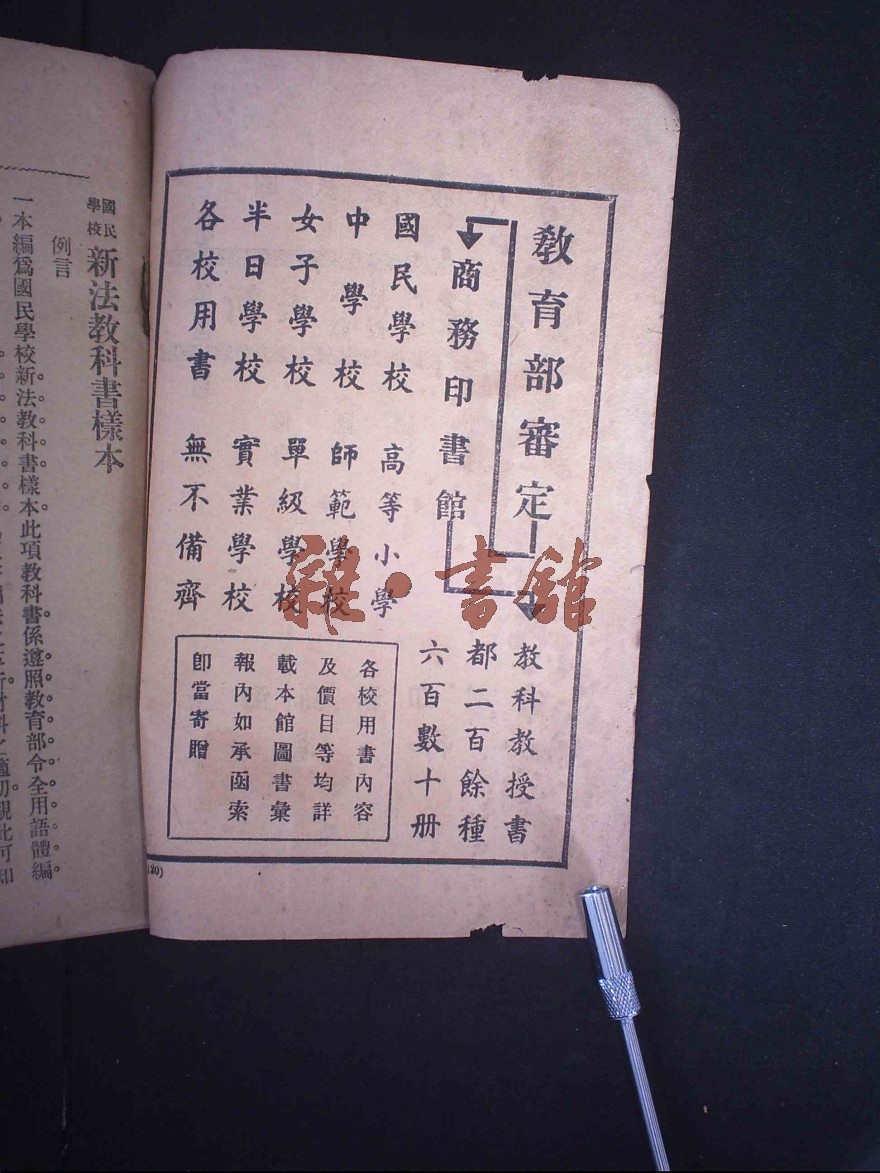 教育部審定
商務印書館
教科教授書
都二百餘種
六百數十册
國民學校 高等小學
中學校 師範學校
女子學校 單級學校
半日學校 實業學校
各校用書 無不備齊
各校用書內容
及價目等均詳
載本館圖書彙
報內如承函索
卽當寄贈
雜·書館
國民學校 新法教科書樣本
例言
一本編爲國民學校新法教科書樣本此項教科書係遵照教育部令全用語體編。